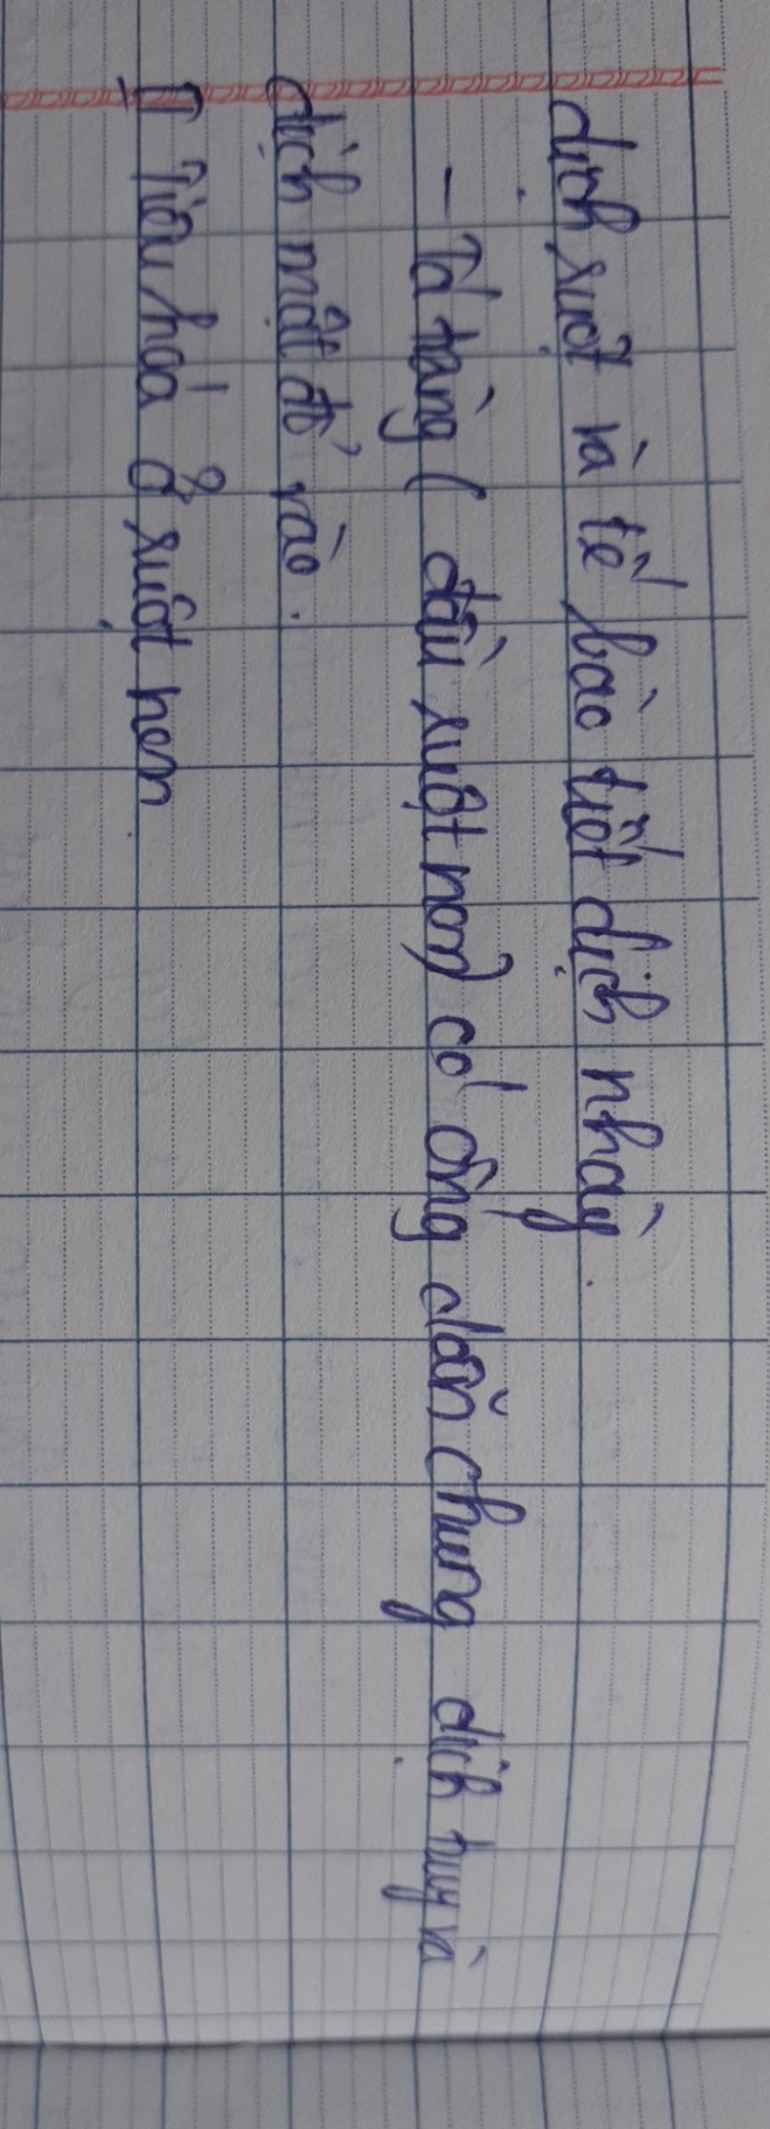 dịch ruột và tế bào tiết dịch nhày.
- Tá tràng ( đầu ruột non) có ống dẫn chung dịch tuỵ và
dịch mật đổ vào.
II Tiêu hoá ở ruột non